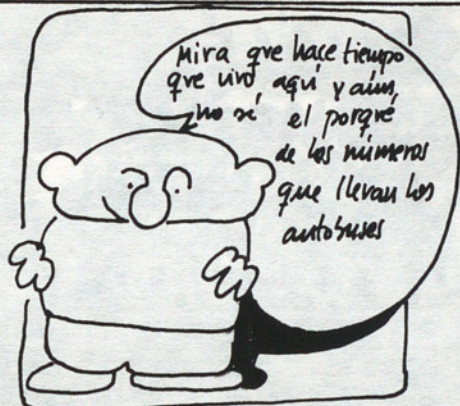 Mira que hace tiempo
que vivo aquí y aún,
no sé el porqué
de los números
que llevan los
autobuses